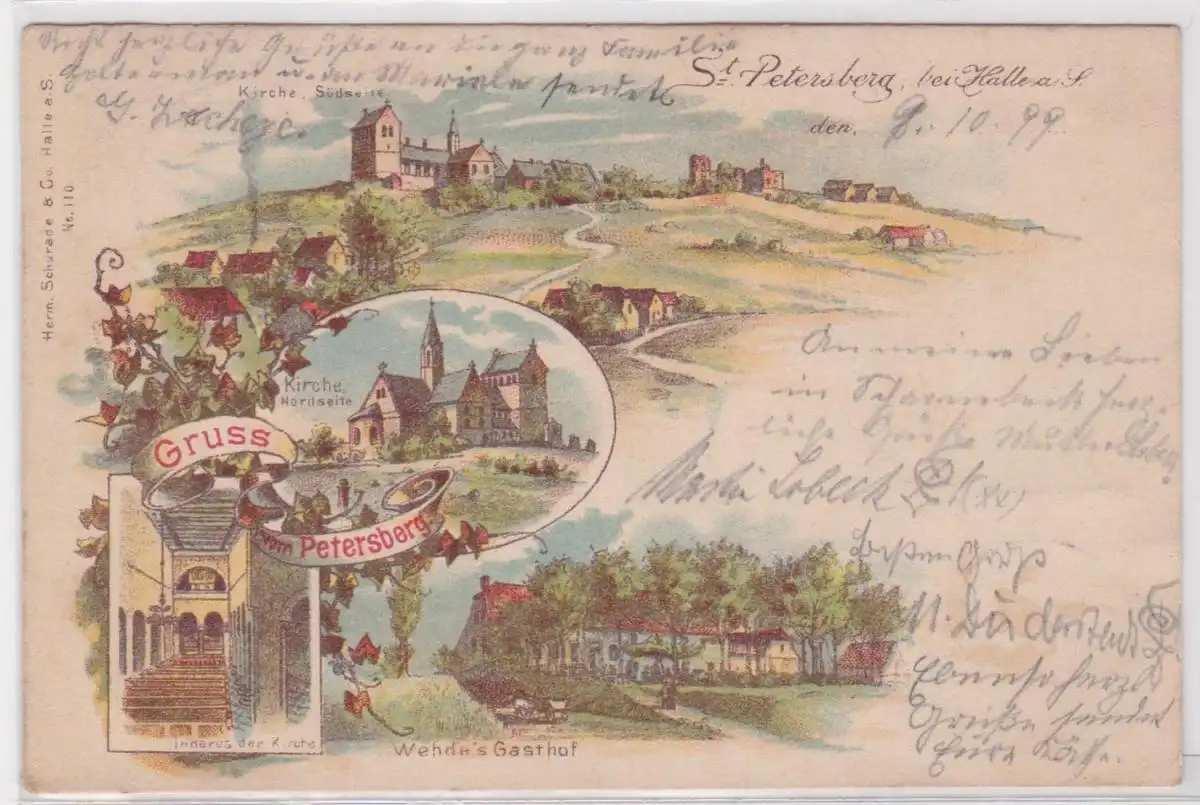 Recht herzliche Grüße an die ganz Familie
u. an sendet
G.
St. Petersberg, bei Halle a. S.
den, 8. 10. 99.
Kirche, Südseite
Herm. Schurade & Co. Halle a. S.
No. 110
Kirche,
Nordseite
Gruss
vom Petersberg
Inneres der Kirche
Wehde's Gasthof
An meine Lieben
in Scharmbeck herz-
liche Grüße
Martin Lobeck
besten Gruß
M. Duderstadt
Ebenso herzl.
Grüße sendet
Eure Käthe.